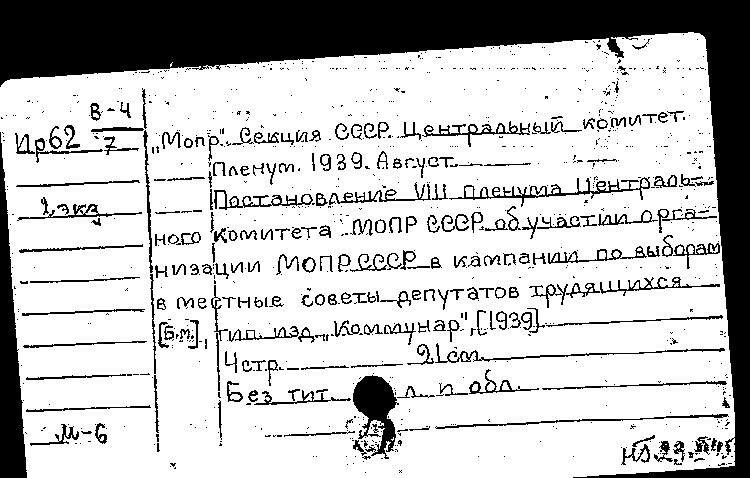 В-4
Пр62 7
„Мопр". Секция СССР. Центральный комитет.
Пленум. 1939. Август.
Постановление VIII пленума Централь-
2 экз
ного комитета МОПР СССР об участии орга-
низации МОПР СССР в кампании по выборам
в местные советы депутатов трудящихся.
[Б.м.], тип. изд. „Коммунар", [1939].
4 стр. 21 см.
Без тит. л. и обл.
М-6